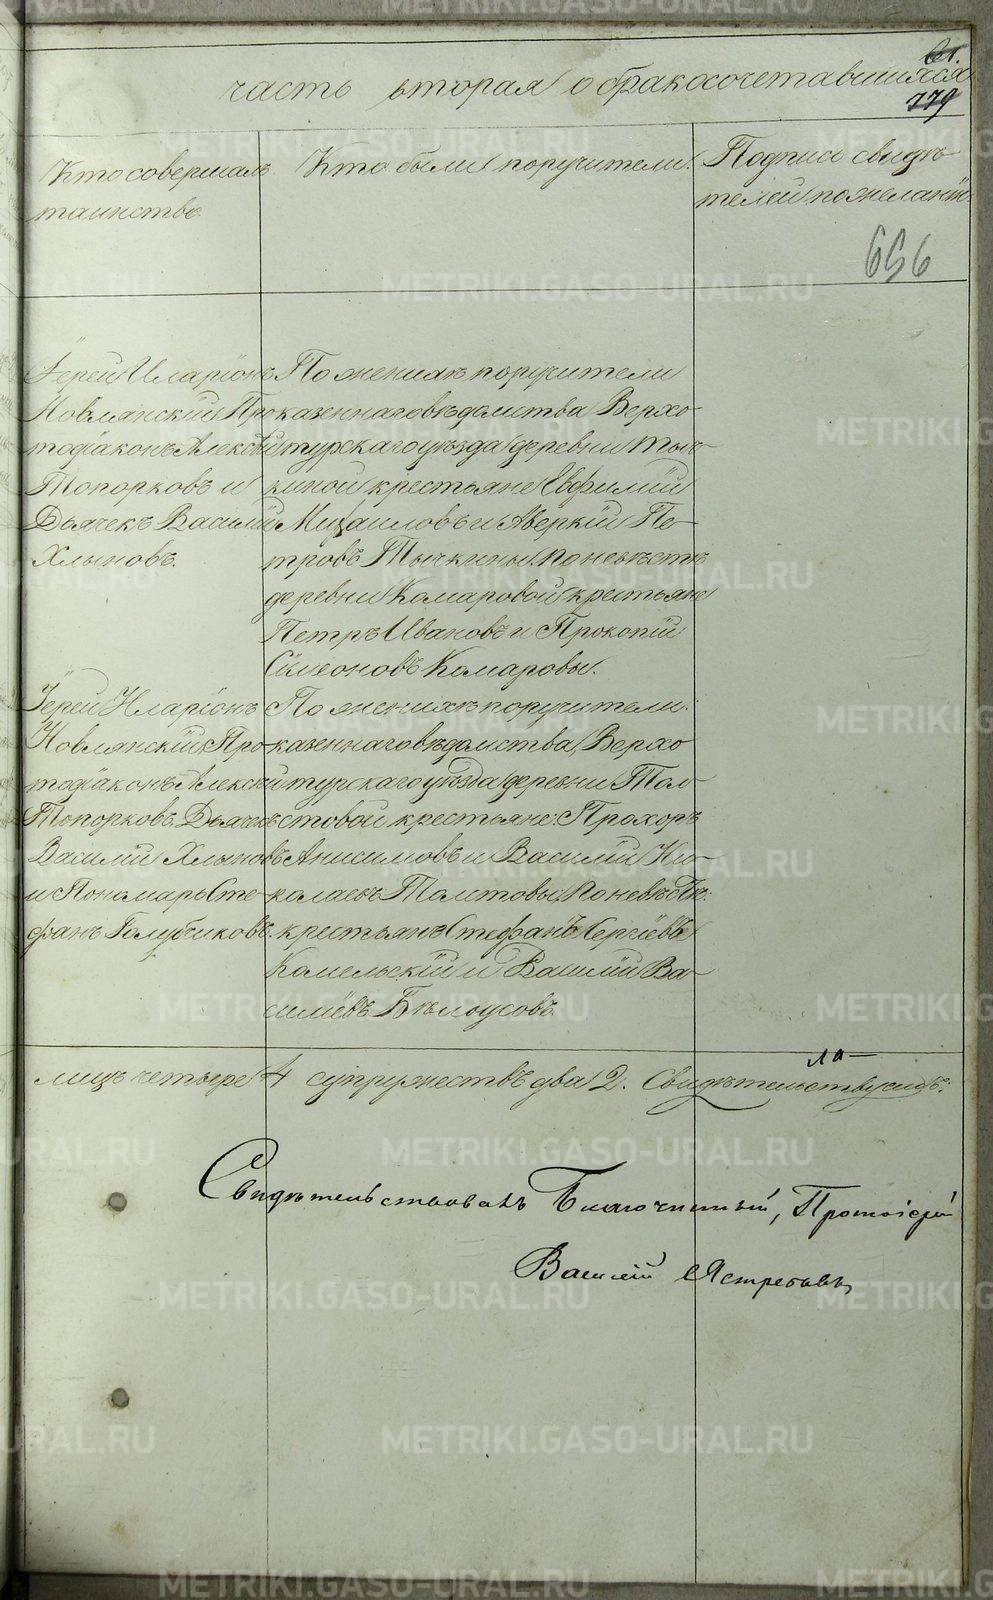 часть вторая о бракосочетавшихся
779
Кто совершалъ
таинство.
Кто были поручители.
Подпись свидѣ-
телей по желанію.
656
Іерей Иларіонъ
Новлянскій, Про-
тодіаконъ Алексѣй
Топорковъ и
Дьячекъ Василій
Хлыновъ.
По женихѣ поручители
казеннаго вѣдомства Верхо-
турскаго уѣзда деревни Тыч-
киной крестьяне Евфимій
Михаиловъ и Аверкій Пе-
тровъ Тычкины, по невѣстѣ
деревни Комаровой крестьяне
Петръ Ивановъ и Прокопій
Симеоновъ Комаровы.
Іерей Иларіонъ
Новлянскій, Про-
тодіаконъ Алексѣй
Топорковъ, Дьячекъ
Василій Хлыновъ
и Пономарь Сте-
фанъ Голубчиковъ.
По женихѣ поручители:
казеннаго вѣдомства, Верхо
турскаго уѣзда деревни Тол-
стовой крестьяне: Прохоръ
Анисимовъ и Василій Ни-
колаевъ Толстовы, по невѣстѣ:
крестьянъ Стефанъ Сергіевъ
Комельскій и Василій Ва-
сильевъ Бѣлоусовъ.
лицъ четыре 4 супружествъ два 2. Свидѣтельствуемъ:
Свидѣтельствовалъ Благочинный, Протоіерей
Василій Ястребовъ,
METRIKI.GASO-URAL.RU